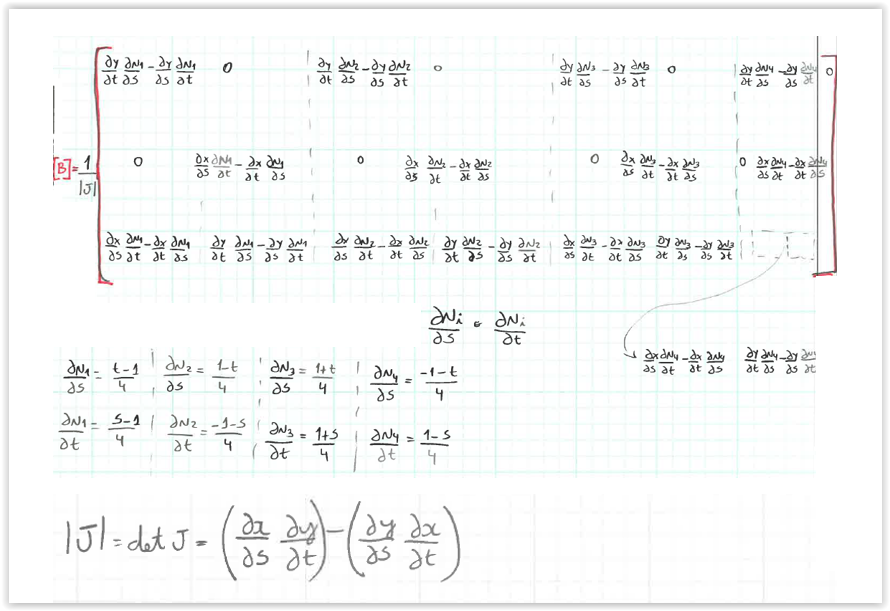 ∂y/∂t ∂N1/∂s - ∂y/∂s ∂N1/∂t 0 ∂y/∂t ∂N2/∂s - ∂y/∂s ∂N2/∂t 0 ∂y/∂t ∂N3/∂s - ∂y/∂s ∂N3/∂t 0 ∂y/∂t ∂N4/∂s - ∂y/∂s ∂N4/∂t 0
[B] = 1/|J| 0 ∂x/∂s ∂N1/∂t - ∂x/∂t ∂N1/∂s 0 ∂x/∂s ∂N2/∂t - ∂x/∂t ∂N2/∂s 0 ∂x/∂s ∂N3/∂t - ∂x/∂t ∂N3/∂s 0 ∂x/∂s ∂N4/∂t - ∂x/∂t ∂N4/∂s
∂x/∂s ∂N1/∂t - ∂x/∂t ∂N1/∂s ∂y/∂t ∂N1/∂s - ∂y/∂s ∂N1/∂t ∂x/∂s ∂N2/∂t - ∂x/∂t ∂N2/∂s ∂y/∂t ∂N2/∂s - ∂y/∂s ∂N2/∂t ∂x/∂s ∂N3/∂t - ∂x/∂t ∂N3/∂s ∂y/∂t ∂N3/∂s - ∂y/∂s ∂N3/∂t
∂Ni/∂s ∂Ni/∂t
∂x/∂s ∂N4/∂t - ∂x/∂t ∂N4/∂s ∂y/∂t ∂N4/∂s - ∂y/∂s ∂N4/∂t
∂N1/∂s = t-1/4 ∂N2/∂s = 1-t/4 ∂N3/∂s = 1+t/4 ∂N4/∂s = -1-t/4
∂N1/∂t = s-1/4 ∂N2/∂t = -1-s/4 ∂N3/∂t = 1+s/4 ∂N4/∂t = 1-s/4
|J| = det J = (∂x/∂s ∂y/∂t) - (∂y/∂s ∂x/∂t)